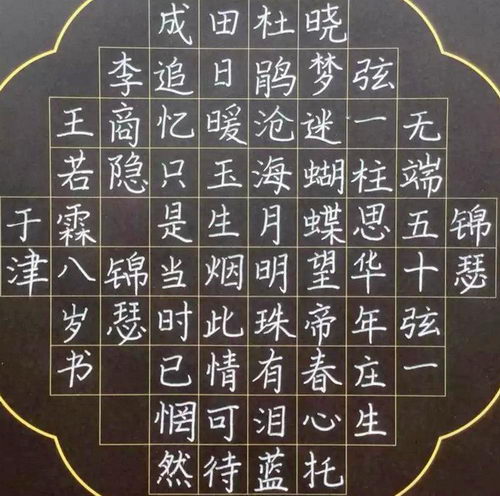 锦瑟
无端五十弦一
弦一柱思华年庄生
晓梦迷蝴蝶望帝春心托
杜鹃沧海月明珠有泪蓝
田日暖玉生烟此情可待
成追忆只是当时已惘然
李商隐 锦瑟
王若霖八岁书
于津